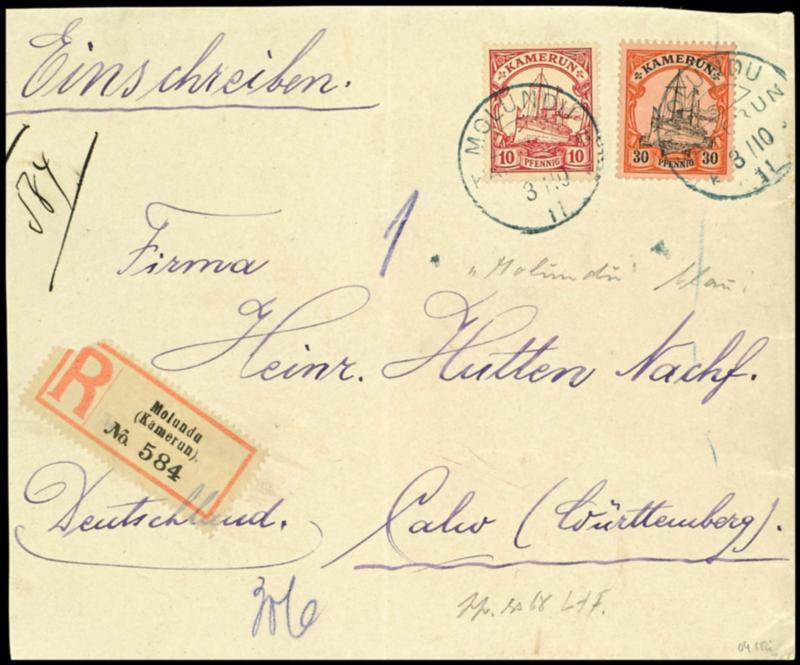 Einschreiben.
KAMERUN
10 PFENNIG 10
KAMERUN
30 PFENNIG 30
MOLUNDU
3 /10
11
KAMERUN
3 /10
11
584
1
"Molundu" blau!
Firma
Heinr. Hutten Nachf.
R
Molundu
(Kamerun).
No. 584
Deutschland.
Calw (Württemberg).